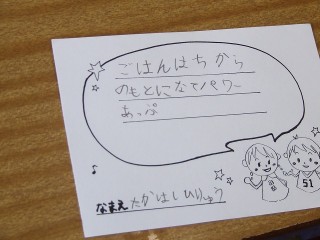 ごはんはちから
のもとになてパワー
あっぷ
なまえ たかはしひりゅう
51